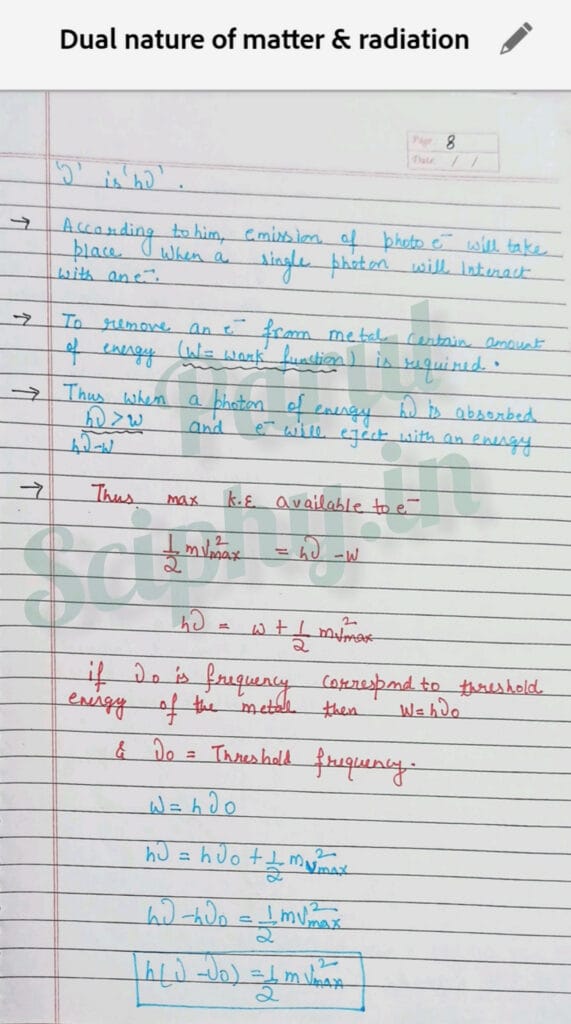 Dual nature of matter & radiation
Page 8
Date / /
'ν' is 'hν'.
→ According to him, emission of photo e⁻ will take
place when a single photon will Interact
with an e⁻.
→ To remove an e⁻ from metal certain amount
of energy (W= work function) is required.
→ Thus when a photon of energy hν is absorbed
hν>w and e⁻ will eject with an energy
hν-w
→ Thus max K.E available to e⁻
1/2 mv²max = hν -w
hν = w + 1/2 mv²max
if ν₀ is frequency correspond to threshold
energy of the metal then W=hν₀
& ν₀ = Threshold frequency.
W = hν₀
hν = hν₀ + 1/2 mv²max
hν -hν₀ = 1/2 mv²max
h(ν -ν₀) = 1/2 mv²max
Parul
Sciphy.in